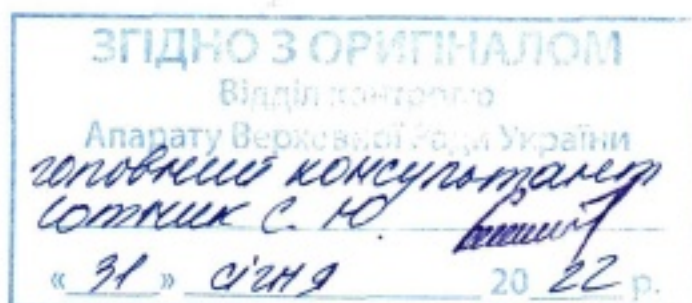 ЗГІДНО З ОРИГІНАЛОМ
Відділ контролю
Апарату Верховної Ради України
головний консультант
Сотник С. Ю.
« 31 » січня 20 22 р.